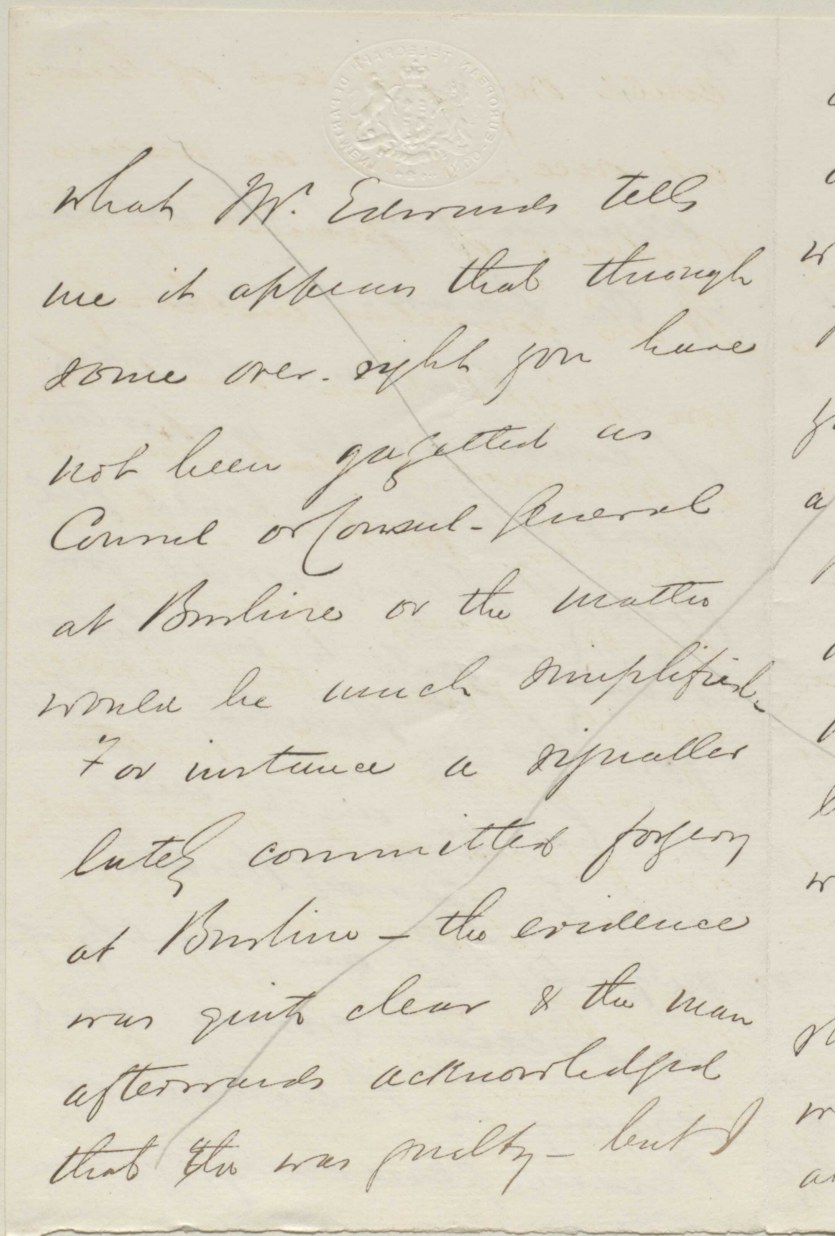 what Mr. Edwards tells
me it appears that through
some over-sight you have
not been gazetted as
Consul or Consul-General
at Bushire or the matter
would be much simplified.
For instance a signaller
lately committed forgery
at Bushire – the evidence
was quite clear & the man
afterwards acknowledged
that he was guilty – but I